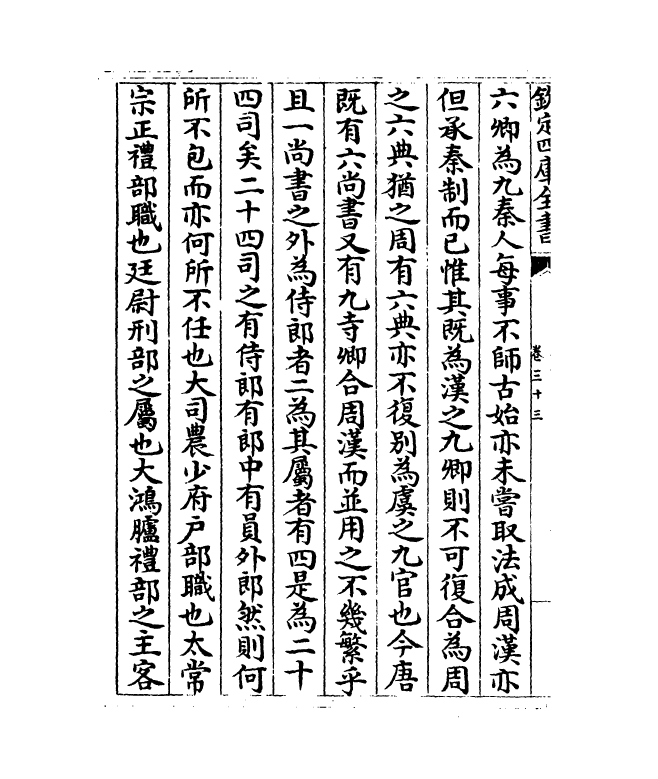 欽定四庫全書
卷三十三
六卿為九秦人每事不師古始亦未嘗取法成周漢亦
但承秦制而已惟其既為漢之九卿則不可復合為周
之六典猶之周有六典亦不復別為虞之九官也今唐
既有六尚書又有九寺卿合周漢而並用之不幾繁乎
且一尚書之外為侍郎者二為其屬者有四是為二十
四司矣二十四司之有侍郎有郎中有員外郎然則何
所不包而亦何所不任也大司農少府户部職也太常
宗正禮部職也廷尉刑部之屬也大鴻臚禮部之主客